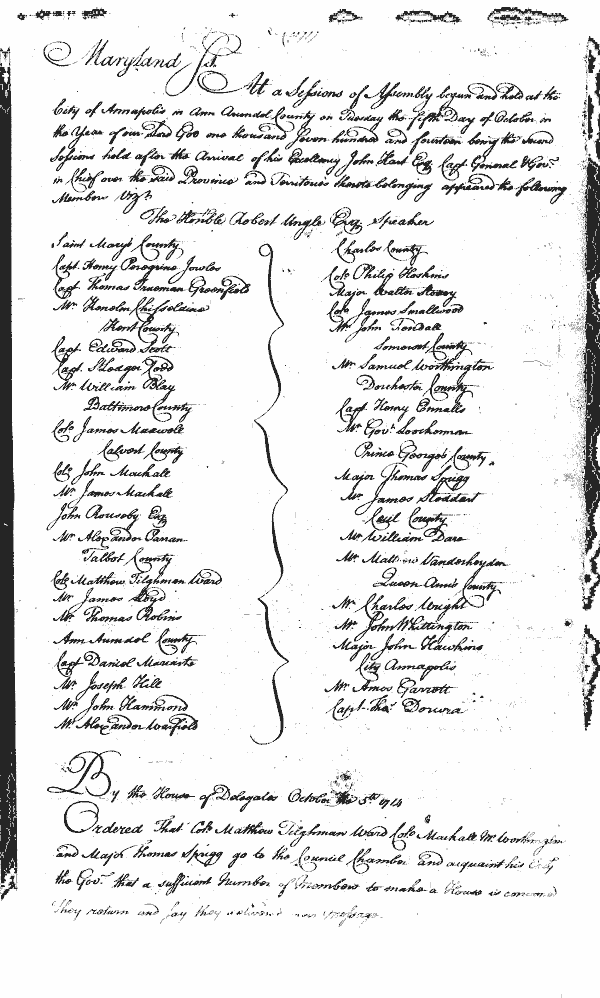 Maryland ss.
At a Sessions of Assembly begun and held at the
City of Annapolis in Ann Arundel County on Tuesday the fifth Day of October in
the Year of our Lord God one thousand Seven hundred and fourteen being the second
Sessions held after the Arrival of his Excellency John Hart Esq. Capt General & Govr.
in Chief over the said Province and Territories thereto belonging appeared the following
Members Vizt
The Honble Robert Ungle Esq. Speaker
Saint Marys County
Capt. Henry Peregrine Jowles
Capt Thomas Trueman Greenfield
Mr. Kenelm Cheseldine
Kent County
Capt. Edward Scott
Capt. St Ledger Codd
Mr. William Blay
Baltimore County
Colo James Maxwell
Calvert County
Colo John Mackall
Mr. James Mackall
John Rousby Esq
Mr. Alexander Parran
Talbot County
Colo Matthew Tilghman Ward
Mr. James Lloyd
Mr. Thomas Robins
Ann Arundel County
Capt Daniel Mariarte
Mr. Joseph Hill
Mr. John Hammond
Mr. Alexander Warfield
Charles County
Colo Philip Hoskins
Major Walter Storey
Colo James Smallwood
Mr. John Fendall
Somerset County
Mr. Samuel Worthington
Dorchester County
Capt Henry Ennalls
Mr. Govt. Loockerman
Prince Georges County
Major Thomas Sprigg
Mr. James Stoddart
Cecil County
Mr. William Dare
Mr. Vanderheyden
Queen Anns County
Mr. Charles Wright
Mr. John Whittington
Major John Hawkins
City Annapolis
Mr. Amos Garrett
Capt. Thos.
By the House of Delegates October the 5th 1714
Ordered That Colo Matthew Tilghman Ward Colo Mackall Mr. Worthington
and Major Thomas Sprigg go to the Council Chamber and acquaint his
the Govr. that a sufficient Number of Members to make a House is convened
They return and say they delivered message.